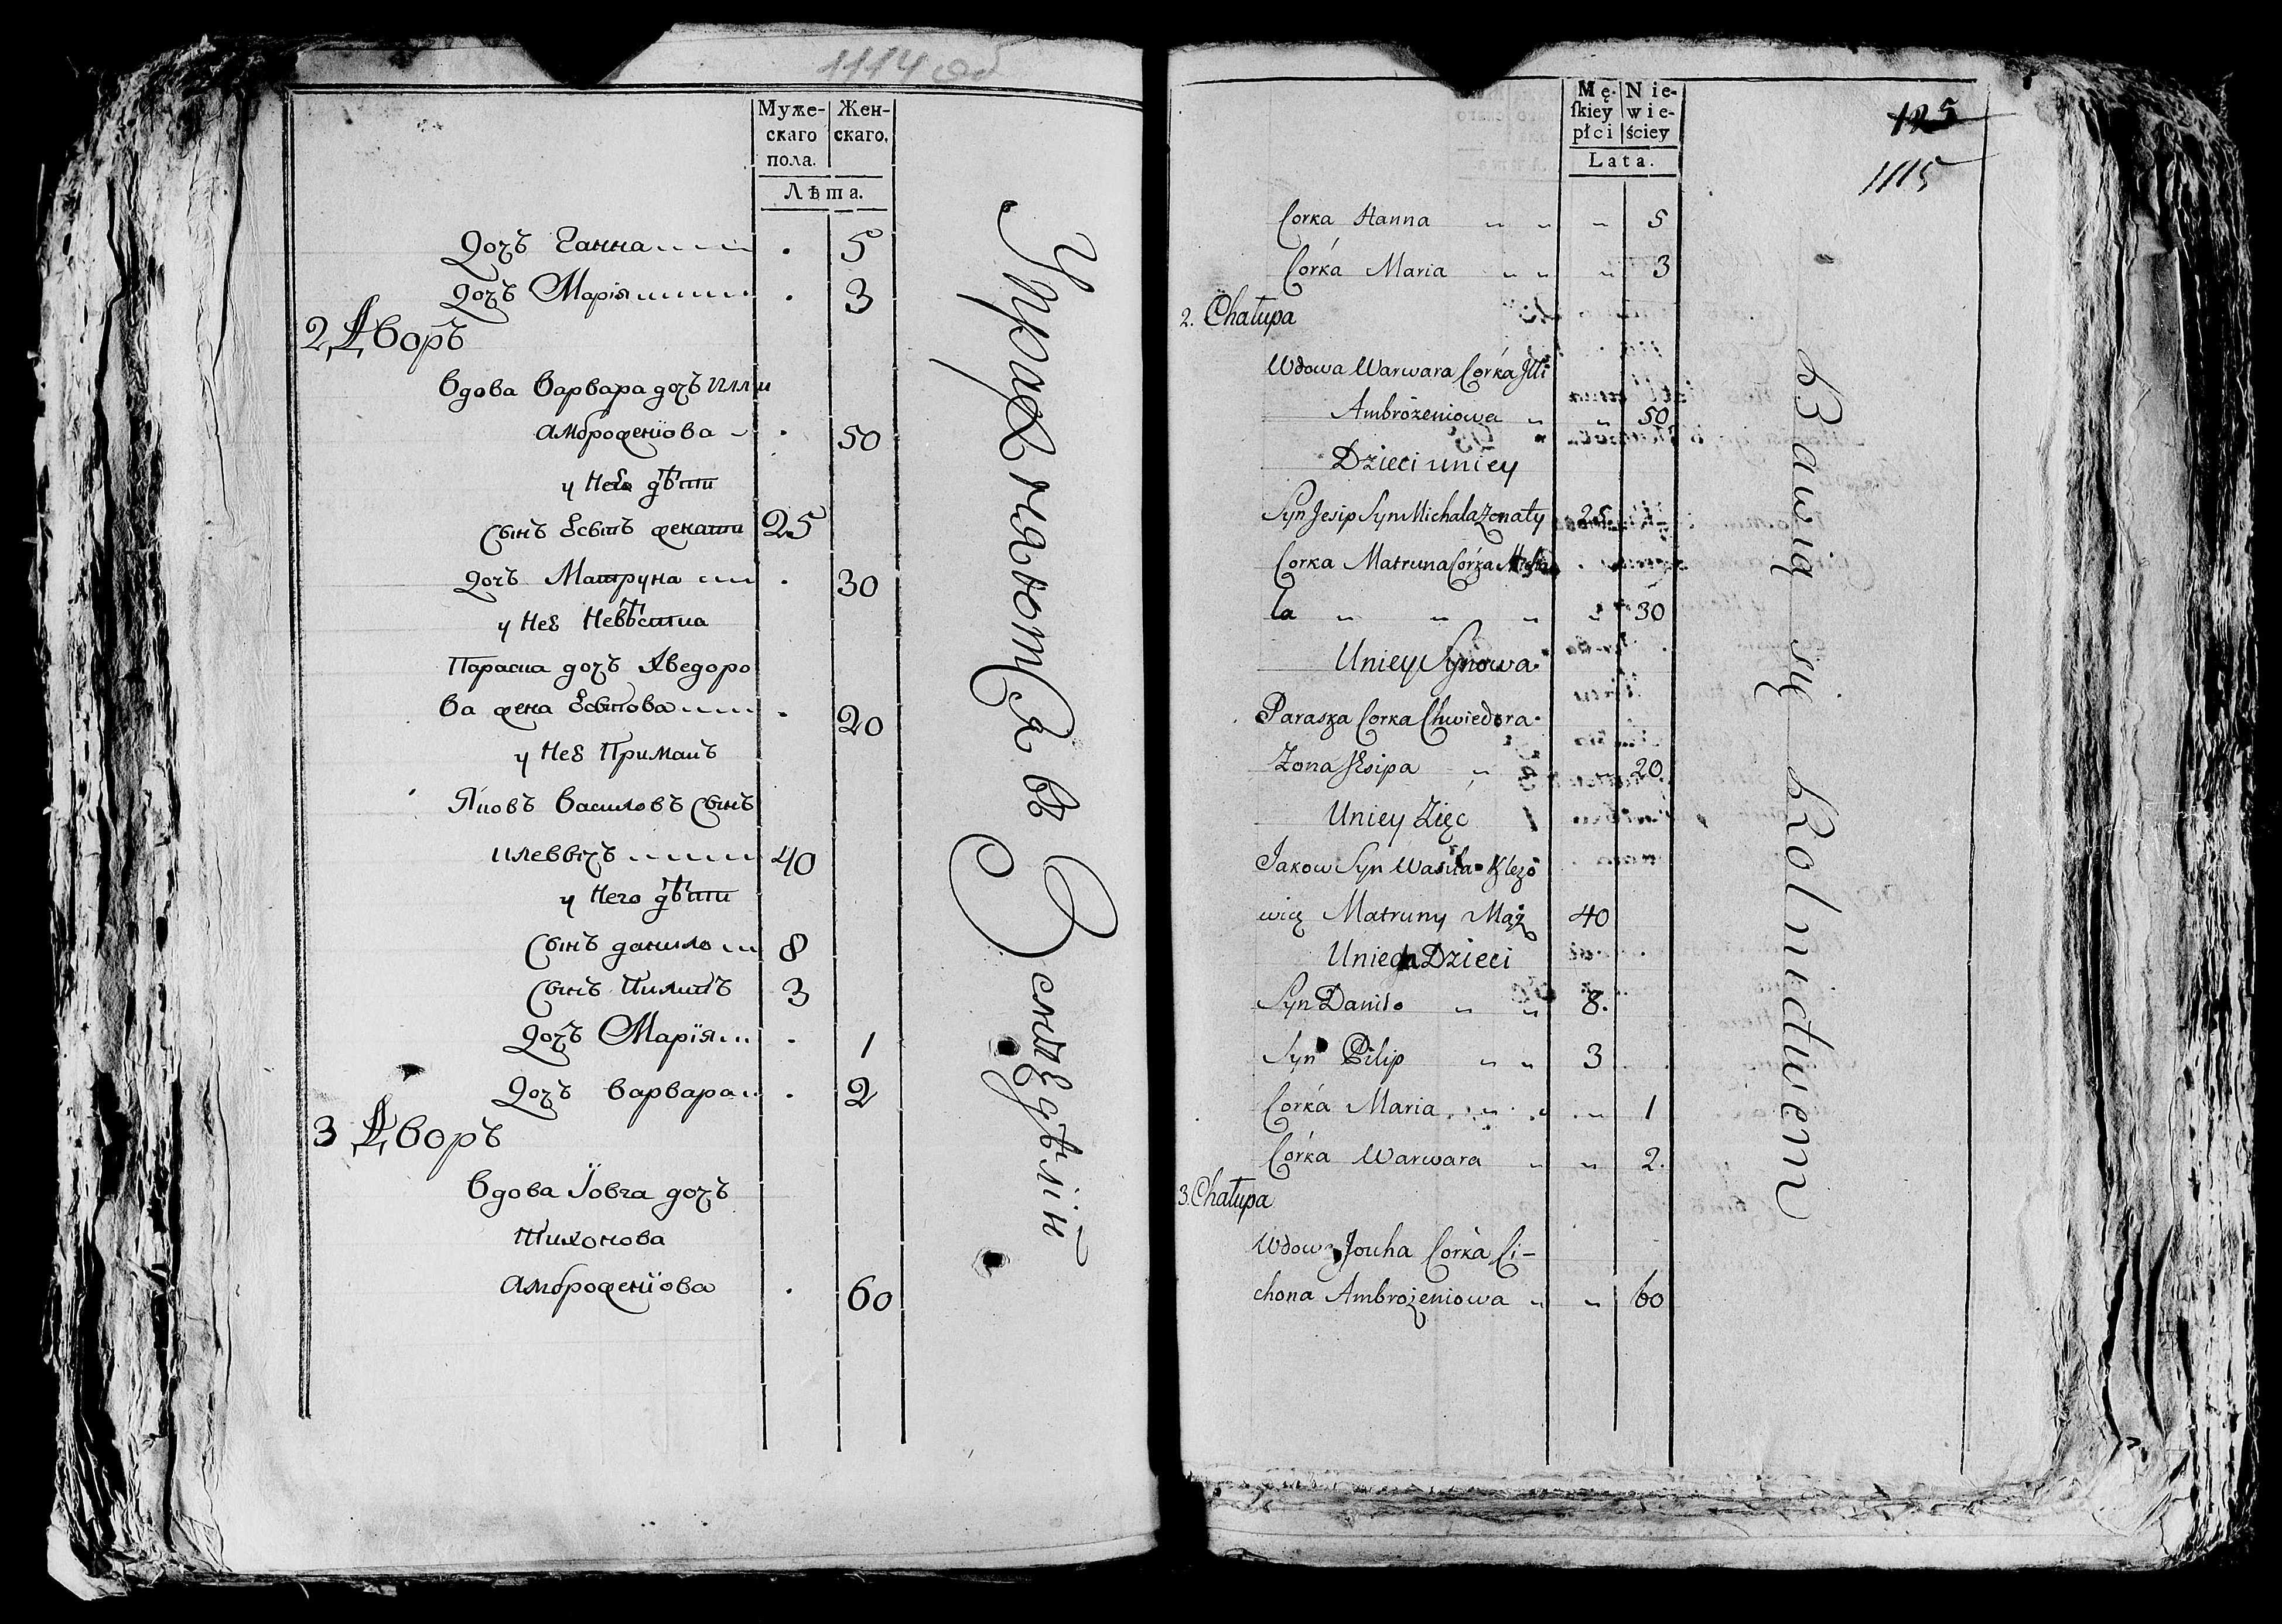 1114 об
Муже-
скаго
пола.
Жен-
скаго.
Лѣта.
Дочъ Ганна 5
Дочъ Марія 3
2 Дворъ
Вдова Варвара дочъ Илли
Амброженїова 50
у Нея дѣти
Сынъ Есипъ женати 25
Дочъ Матруна 30
у Неё Невѣстка
Параска дочъ Хведоро
ва жена Есипова 20
у Неё Примакъ
Яковъ Василовъ Сынъ
40
у Него дѣти
Сынъ данило 8
Сынъ Пилипъ 3
Дочъ Марїя 1
Дочъ Варвара 2
3 Дворъ
Вдова Їовга дочъ
Тихонова
Амброженїова 60
Упражняются въ Земледѣліи
Mę-
skiey
płci
Nie-
wie-
ściey
Lata.
125
1115
Corka Hanna " " " 5
Córka Maria " " " 3
2. Chałupa
Wdowa Warwara Córka Illi
Ambrożeniowa " " 50
Dzieci uniey
Syn Jesip Syn Michala Zonaty 25
Corka Matruna Córka Micha
la " " " " 30
Uniey Synowa
Paraszka Corka Chwiedora
Zona Jesipa " " 20
Uniey Zięc
Jakow Syn Wasila Klezo
wicz Matruny Mąż 40
Uniego Dzieci
Syn Daniło " " 8.
Syn Pilip " " 3
Córka Maria " " " 1
Córka Warwara " " 2.
3. Chałupa
Wdowa Jouha Corka Ci-
chona Ambrożeniowa " " 60
Bawią się Rolnictwem